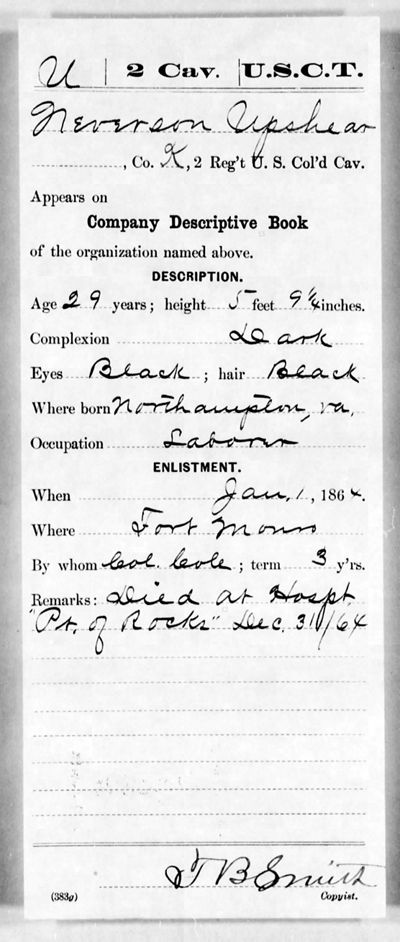 U | 2 Cav. | U.S.C.T.
Neverson Upshear
, Co. K, 2 Reg't U. S. Col'd Cav.
Appears on
Company Descriptive Book
of the organization named above.
DESCRIPTION.
Age 29 years; height 5 feet 9¼ inches.
Complexion Dark
Eyes Black ; hair Black
Where born Northampton, Va.
Occupation Laborer
ENLISTMENT.
When Jan. 1, 1864.
Where Fort Monro
By whom Col. Cole ; term 3 y'rs.
Remarks: Died at Hospt.
"Pt. of Rocks" Dec. 31/64
J B Smith
(383g) Copyist.